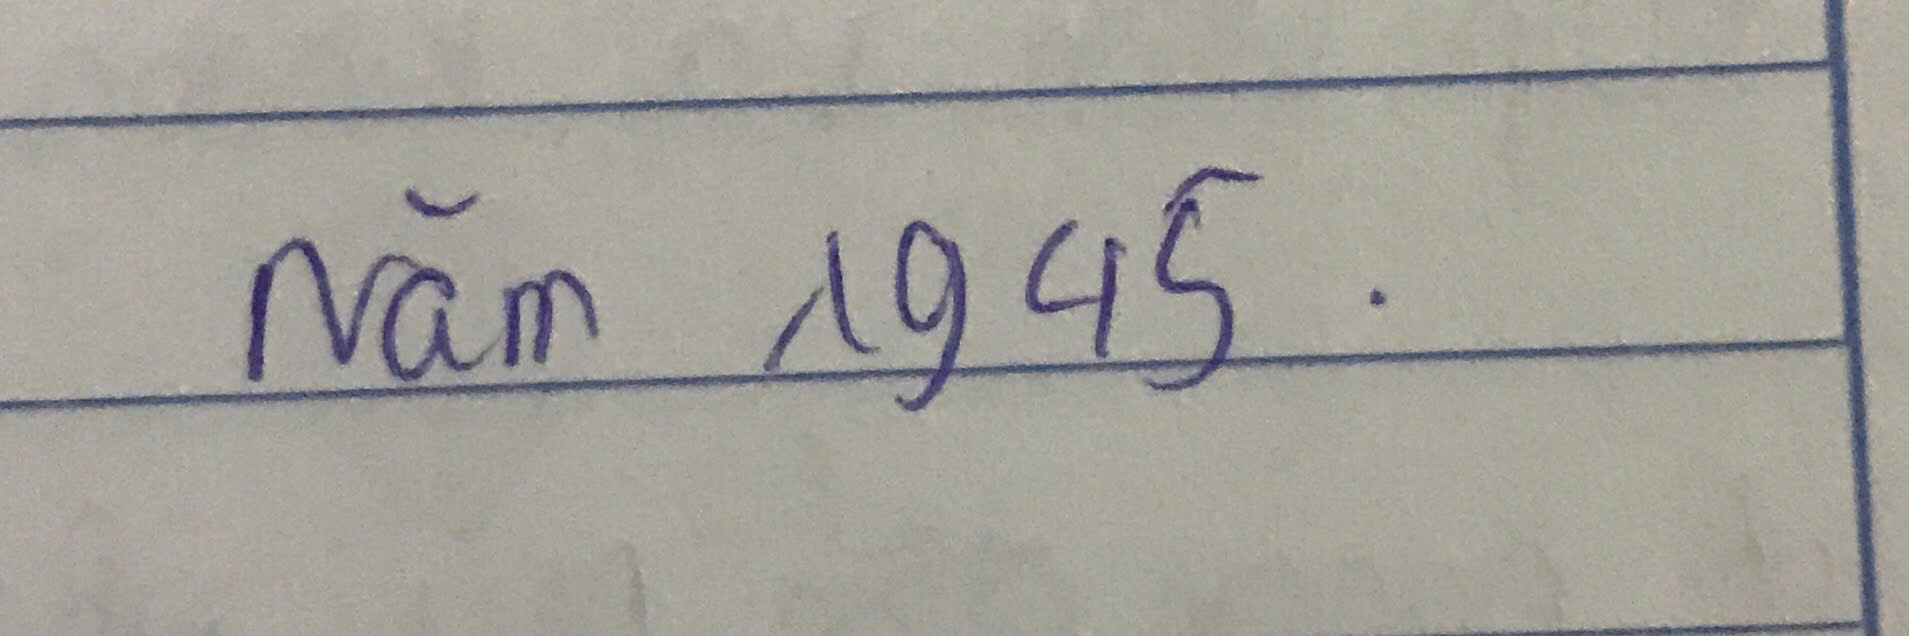 Năm 1945.